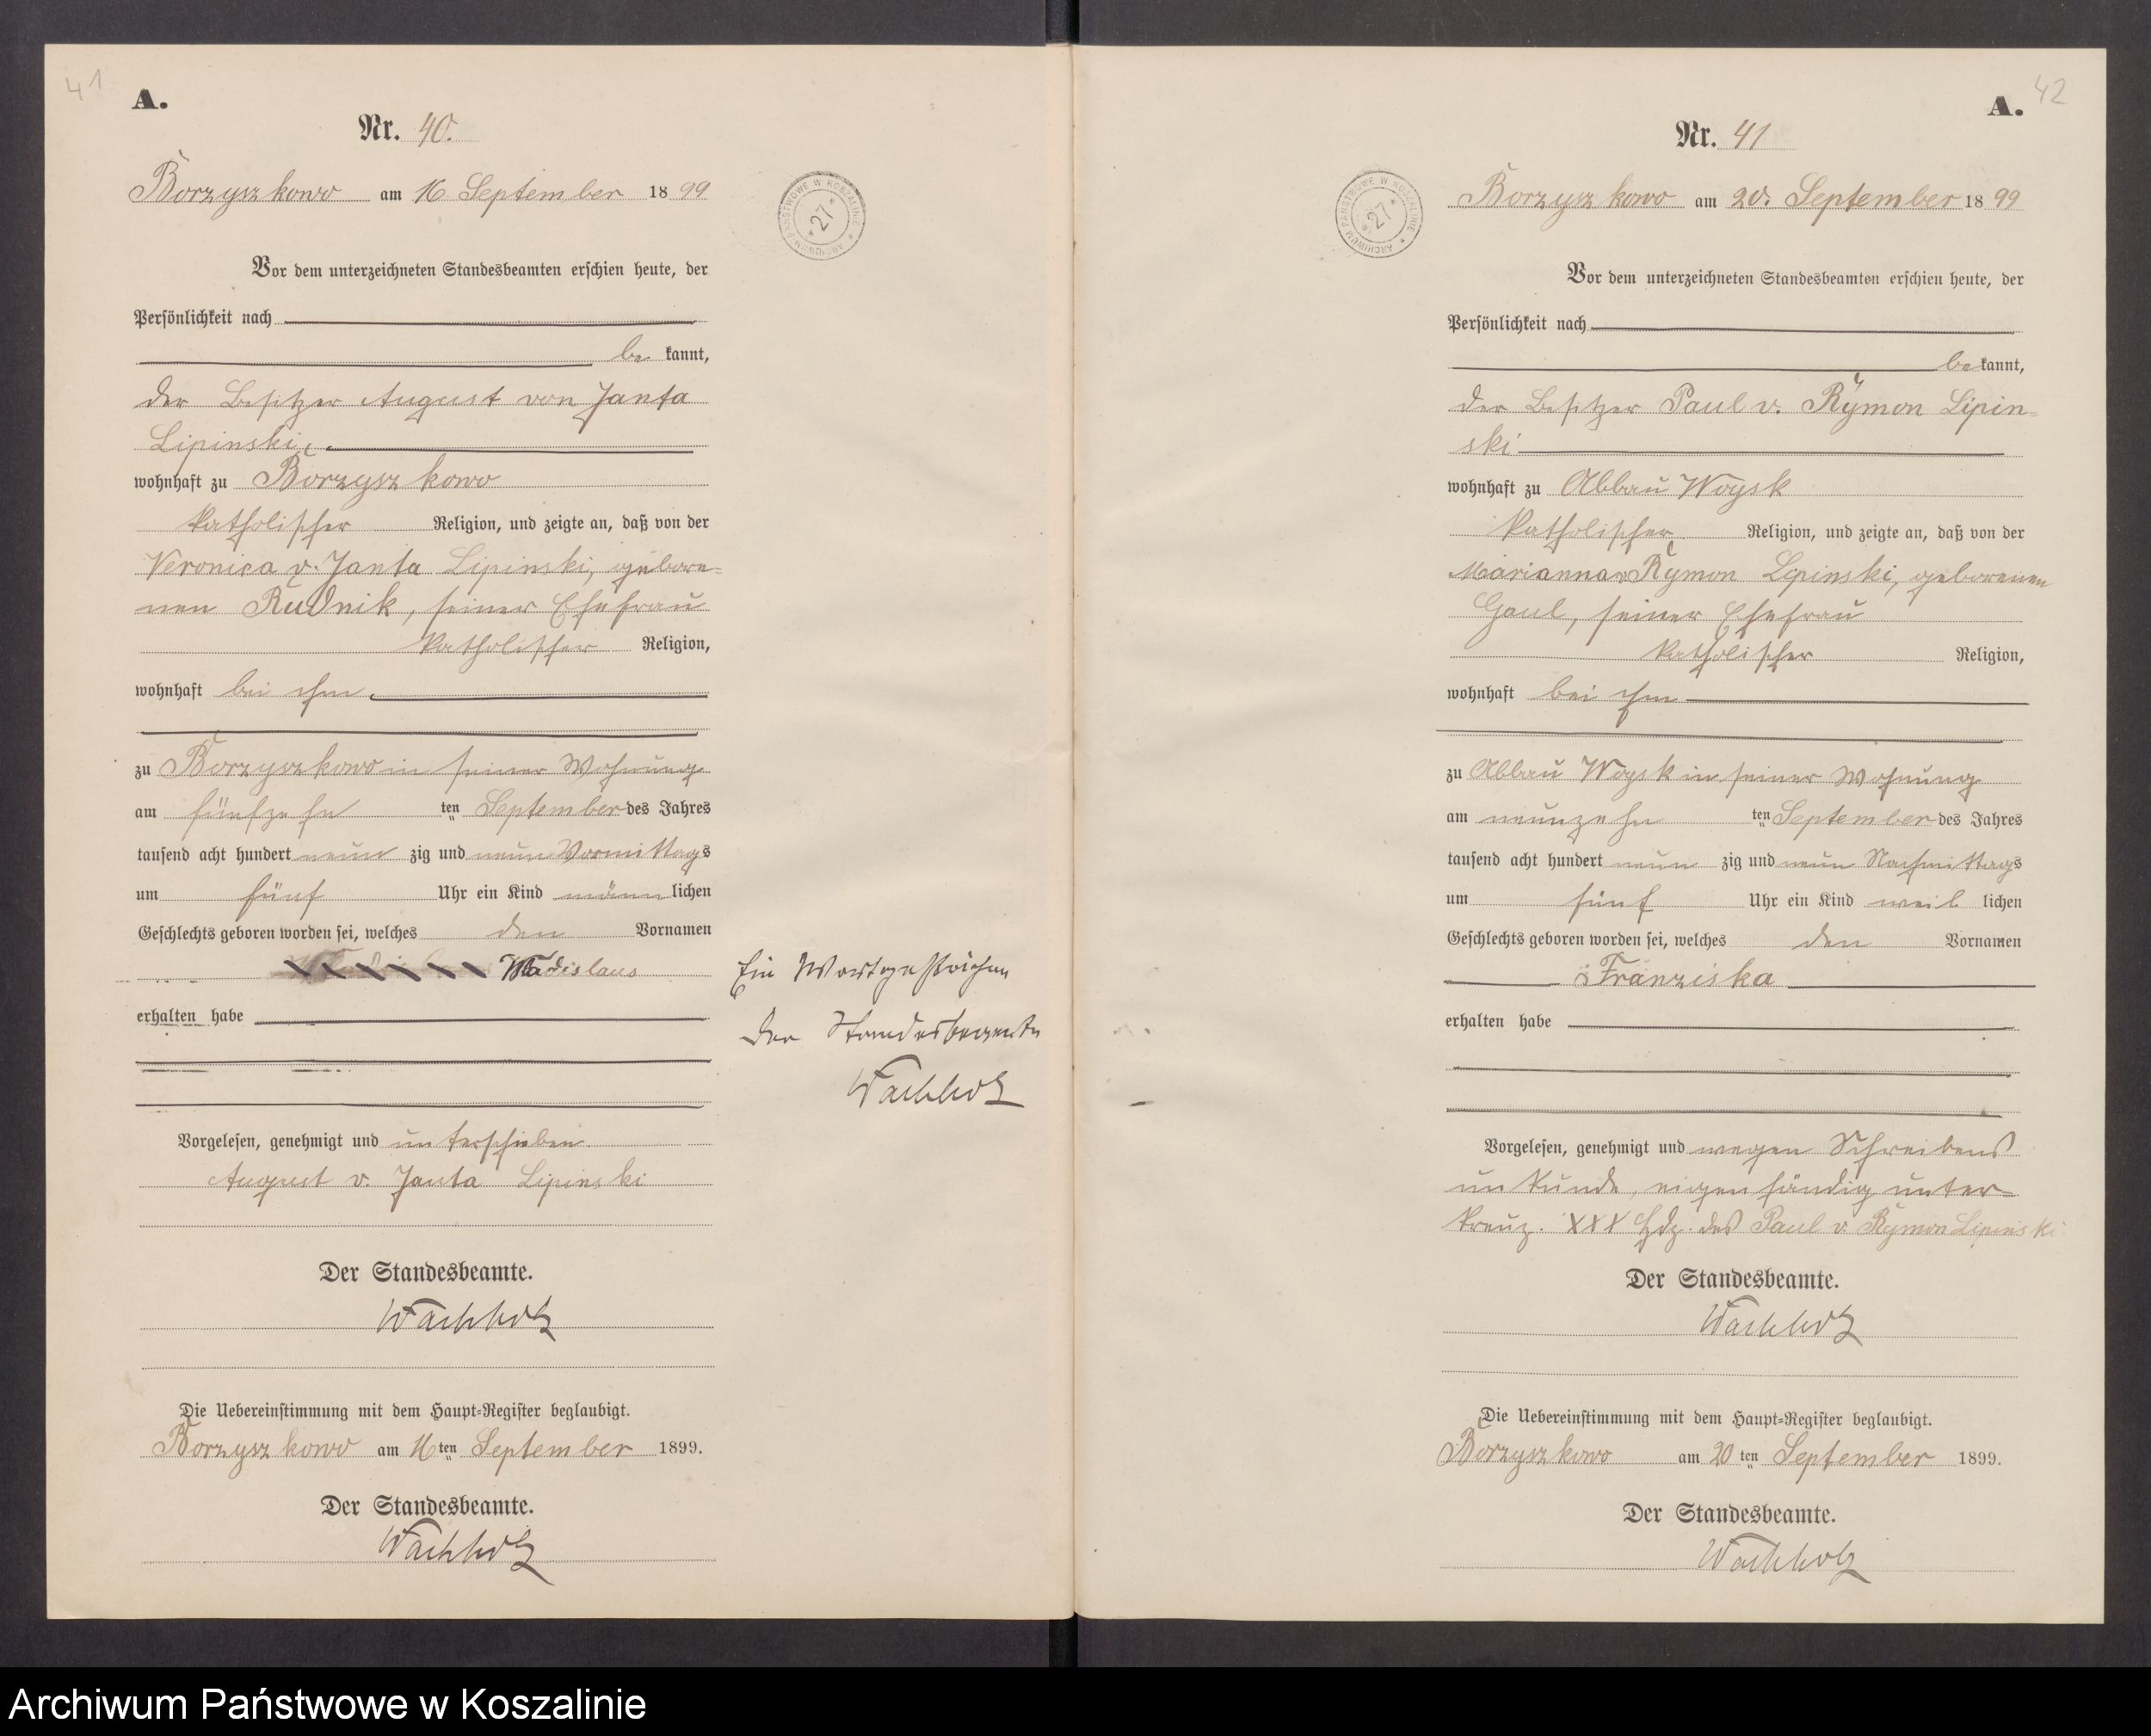 41
A.
Nr. 40.
Borzyszkowo am 16 September 1899
ARCHIWUM PAŃSTWOWE W KOSZALINIE * 27 *
Vor dem unterzeichneten Standesbeamten erschien heute, der
Persönlichkeit nach
be kannt,
der Besitzer August von Janta
Lipinski,
wohnhaft zu Borzyszkowo
katholischer Religion, und zeigte an, daß von der
Veronica v. Janta Lipinski, gebore-
nen Rudnik, seiner Ehefrau
katholischer Religion,
wohnhaft bei ihm
zu Borzyszkowo in seiner Wohnung
am fünfzehn ten September des Jahres
tausend acht hundert neun zig und neun Vormittags
um fünf Uhr ein Kind männlichen
Geschlechts geboren worden sei, welches den Vornamen
Wladislaus
erhalten habe
Ein Wort gestrichen
Der Standesbeamte
Wachholz
Vorgelesen, genehmigt und unterschieben
August v. Janta Lipinski
Der Standesbeamte.
Wachholz
Die Uebereinstimmung mit dem Haupt-Register beglaubigt.
Borzyszkowo am 16ten September 1899.
Der Standesbeamte.
Wachholz
42
A.
Nr. 41
Borzyszkowo am 20. September 1899
ARCHIWUM PAŃSTWOWE W KOSZALINIE * 27 *
Vor dem unterzeichneten Standesbeamten erschien heute, der
Persönlichkeit nach
bekannt,
der Besitzer Paul v. Rymon Lipin-
ski
wohnhaft zu Abbau Woysk
katholischer Religion, und zeigte an, daß von der
Marianna v Rymon Lipinski, geborenen
Gaul, seiner Ehefrau
katholischer Religion,
wohnhaft bei ihm
zu Abbau Woysk in seiner Wohnung
am neunzehn ten September des Jahres
tausend acht hundert neun zig und neun Nachmittags
um fünf Uhr ein Kind weib lichen
Geschlechts geboren worden sei, welches den Vornamen
Franziska
erhalten habe
Vorgelesen, genehmigt und wegen Schreibens
unkunde, eigenhändig unter-
kreuz. XXX Hdz. des Paul v. Rymon Lipinski
Der Standesbeamte.
Wachholz
Die Uebereinstimmung mit dem Haupt-Register beglaubigt.
Borzyszkowo am 20ten September 1899.
Der Standesbeamte.
Wachholz
Archiwum Państwowe w Koszalinie